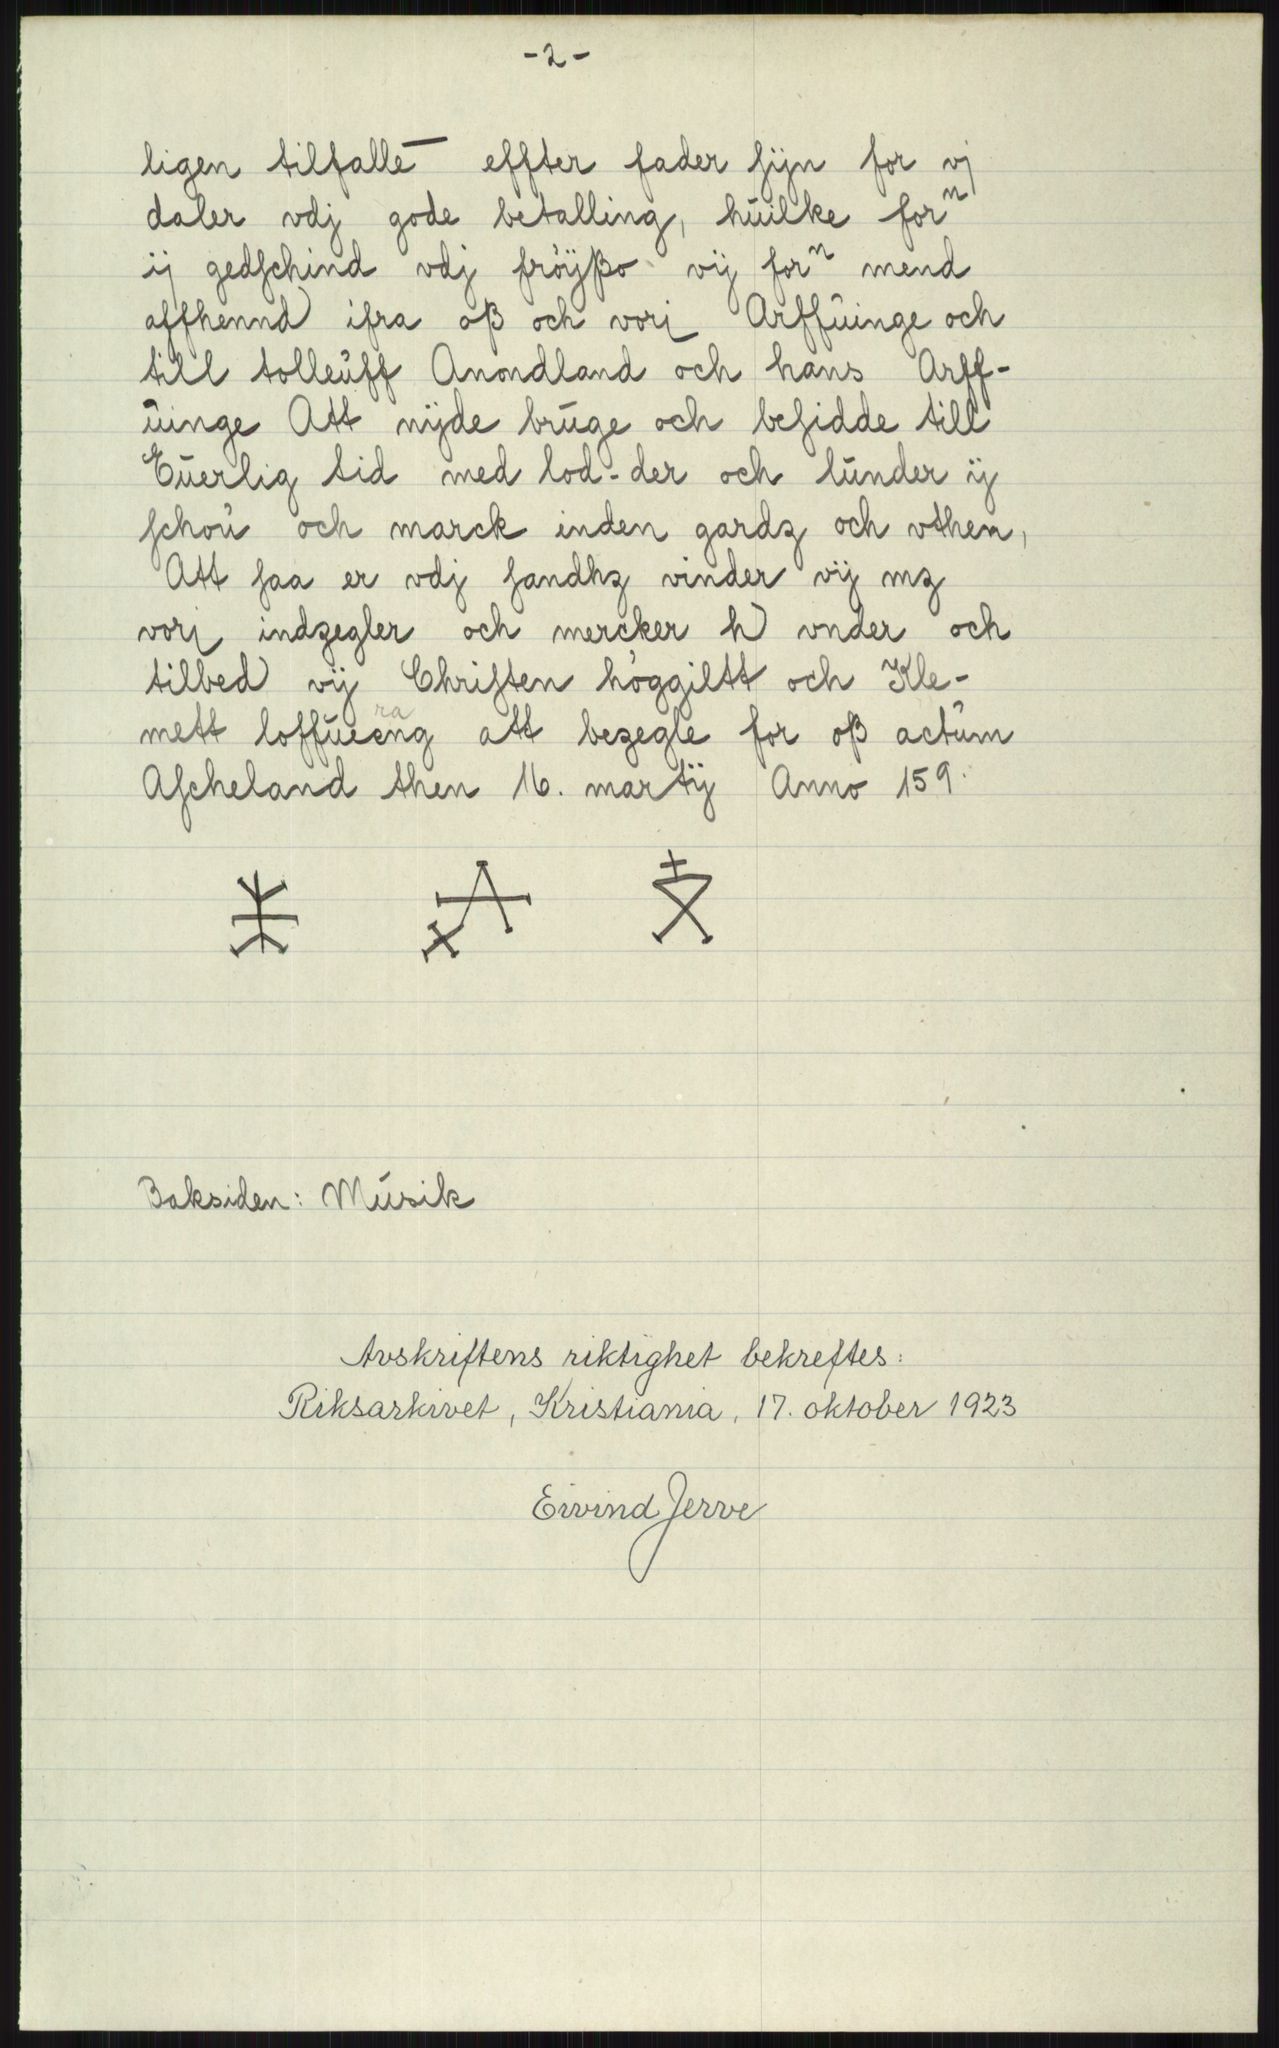 -2-
ligen tilfalle̅ effter fader sijn for vj
daler vdj gode betalling, huilke forⁿ
ij gedschind vdj fröijßo vij forⁿ mend
affhennd ifra oß och vorj Arffuinge och
till tolleuff Anondland och hans Arff-
uinge Att nijde bruge och besidde till
Euerlig tid med lod-der och lunder ij
schou och marck inden gardz och vthen,
Att saa er vdj sandhz vinder vij mz
vorj indzegler och mercker h vnder och
tilbed vij Christen höggiltt och Kle-
mett loffueeng att bezegle for oß actum
ra
Ascheland then 16. martij Anno 159.
Baksiden: Musik
Avskriftens riktighet bekreftes:
Riksarkivet, Kristiania, 17. oktober 1923
Eivind Jerve